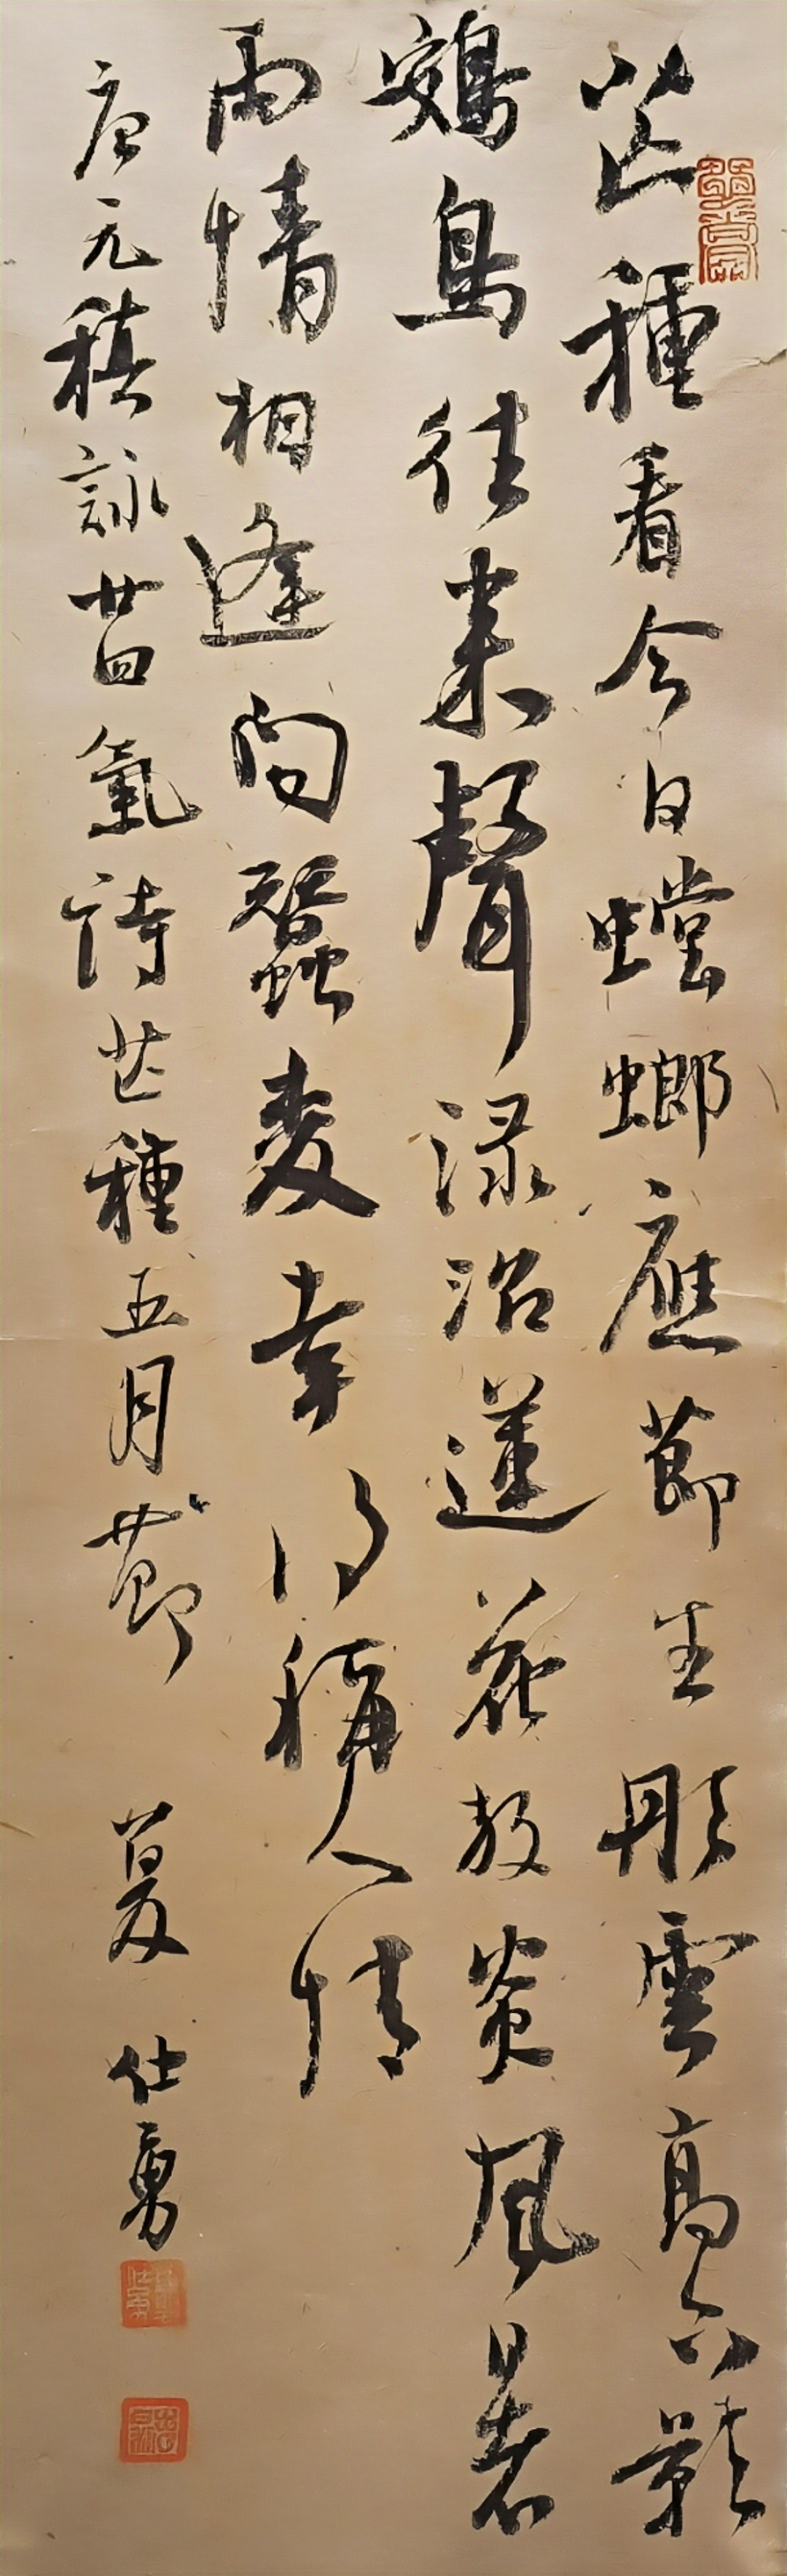 芒種看今日螳螂應節生彤雲高下影
鴳鳥往來聲渌沼蓮花放炎風暑
雨情相逢問蠶麥幸得稱人情
唐元稹詠廿四氣詩芒種五月節 夏仕勇